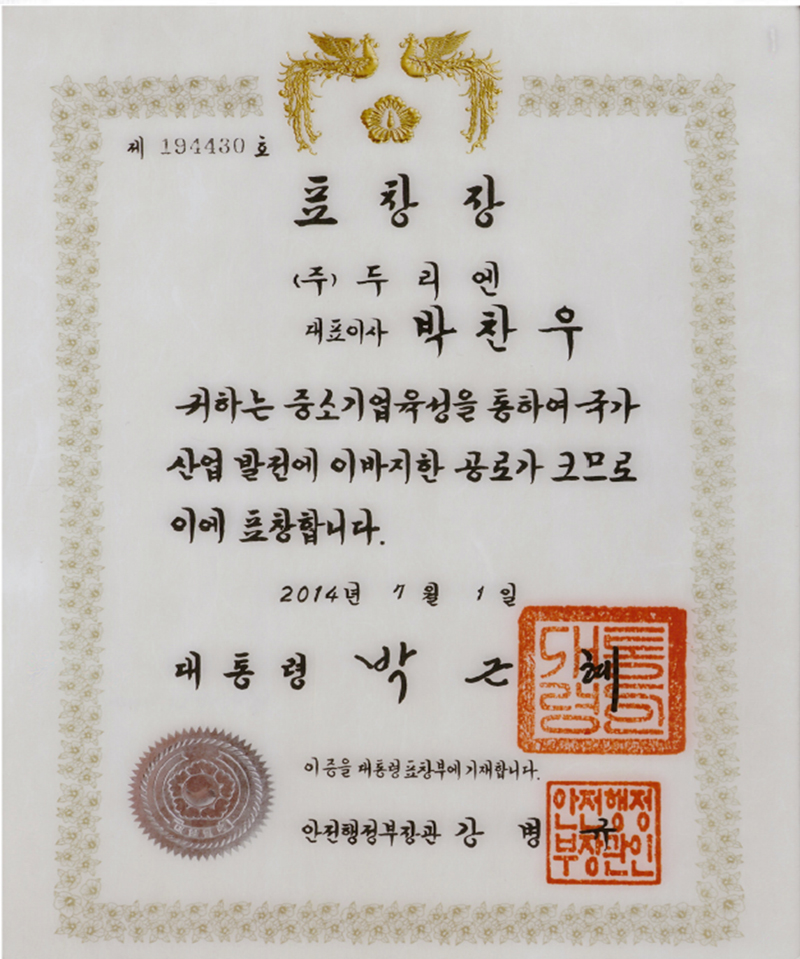 제 194430 호
표 창 장
(주) 두 리 엔
대표이사 박 찬 우
귀하는 중소기업육성을 통하여 국가
산업 발전에 이바지한 공로가 크므로
이에 표창합니다.
2014년 7월 1일
대 통 령 박 근 혜
대통령의인
이 증을 대통령표창부에 기재합니다.
안전행정부장관 강 병 규
안전행정
부장관인